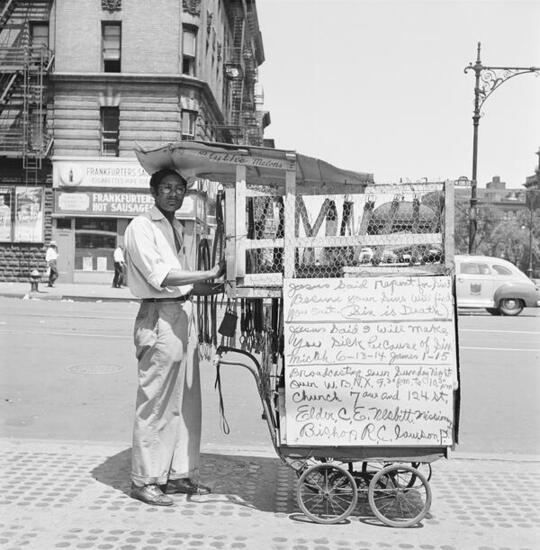 FRANKFURTERS
FRANKFURTERS
HOT SAUSAGES
Melons
Jesus Said Repent for but
Because your Sins will find
you out (Sin is Death)
Jesus Said I Will Make
You Sick because of Sin
Micah 6-13-14 James 1-15
Broadcasting ever Sunday Night
Over W.B.N.X. 9,30 PM, to 10,30 PM
Church 7 ave and 124 St,
Elder, C.E. Nesbitt, Missionary
Bishop R.C. Lawson, P